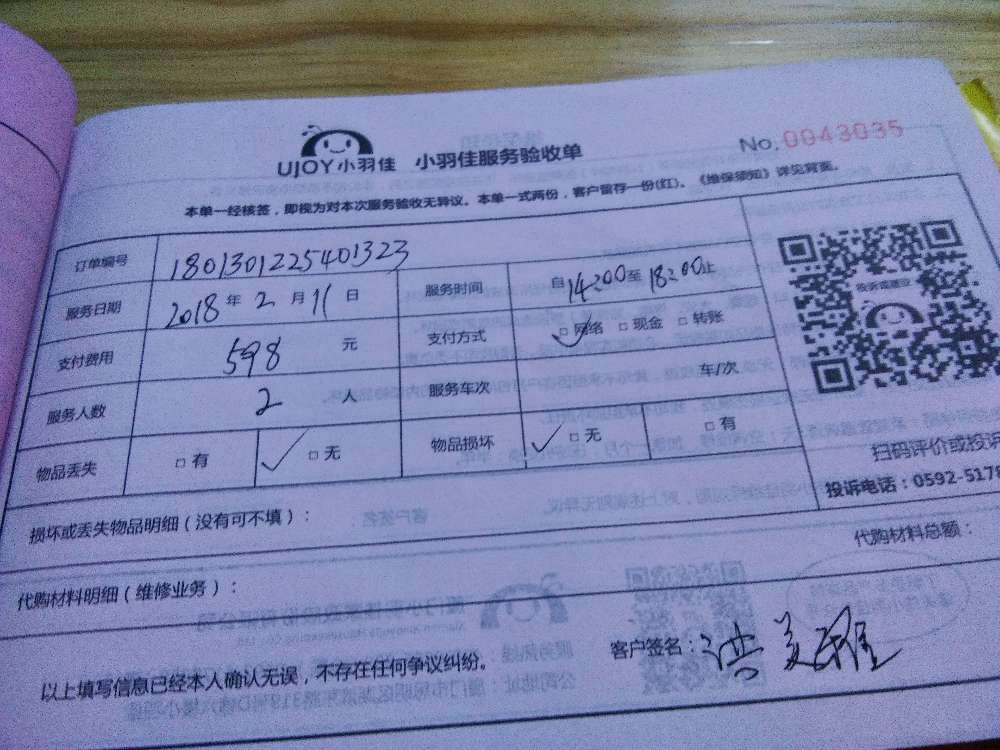 UJOY小羽佳 小羽佳服务验收单 No.0043035
本单一经核签，即视为对本次服务验收无异议。本单一式两份，客户留存一份(红)。《维保须知》详见背面。
订单编号 1801301225401323
服务日期 2018年2月11日 服务时间 自14:00至18:00止
支付费用 598元 支付方式 □网络 □现金 □转账
服务人数 2人 服务车次 车/次
物品丢失 □有 □无 物品损坏 □无 □有
扫码评价或投诉
投诉电话：0592-5178
损坏或丢失物品明细（没有可不填）：
代购材料明细（维修业务）： 代购材料总额：
以上填写信息已经本人确认无误，不存在任何争议纠纷。 客户签名：洪美